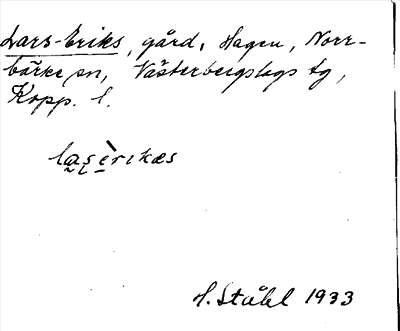 Lars-Eriks, gård, Hagen, Norr-
bärke sn, Västerbergslags tg,
Kopp. l.
la̰s̨ḕrikæs
H. Ståhl 1933